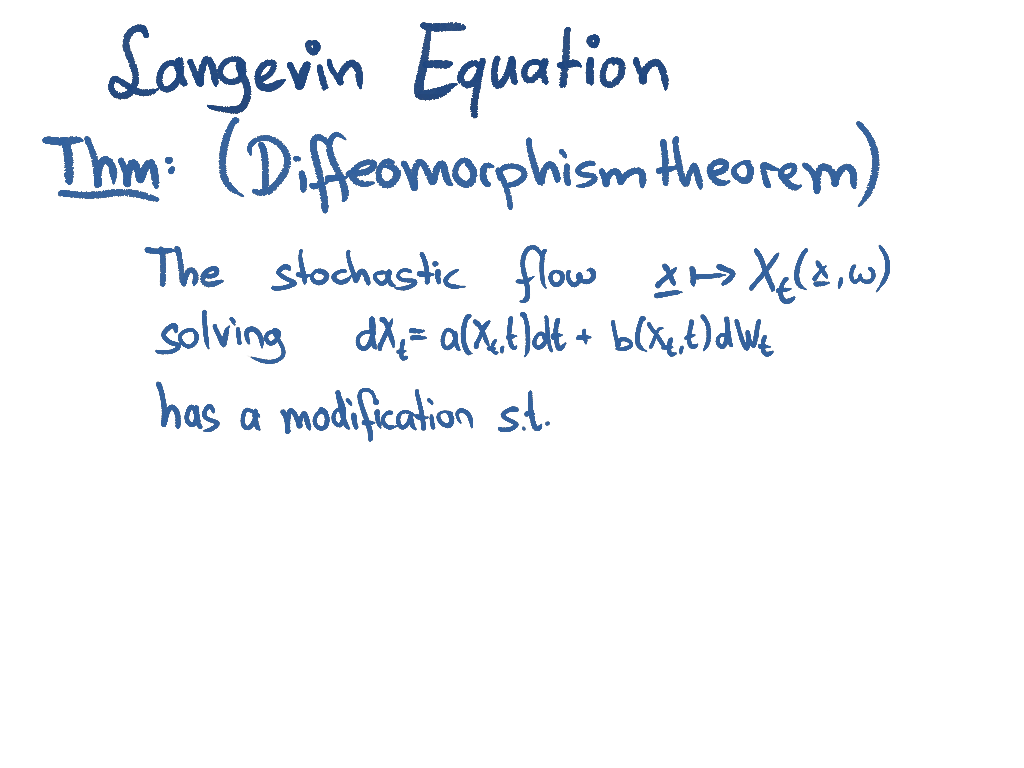 Langevin Equation
Thm: (Diffeomorphism theorem)
The stochastic flow x ↦ X_t(x, ω)
solving dX_t = a(X_t, t)dt + b(X_t, t)dW_t
has a modification s.t.